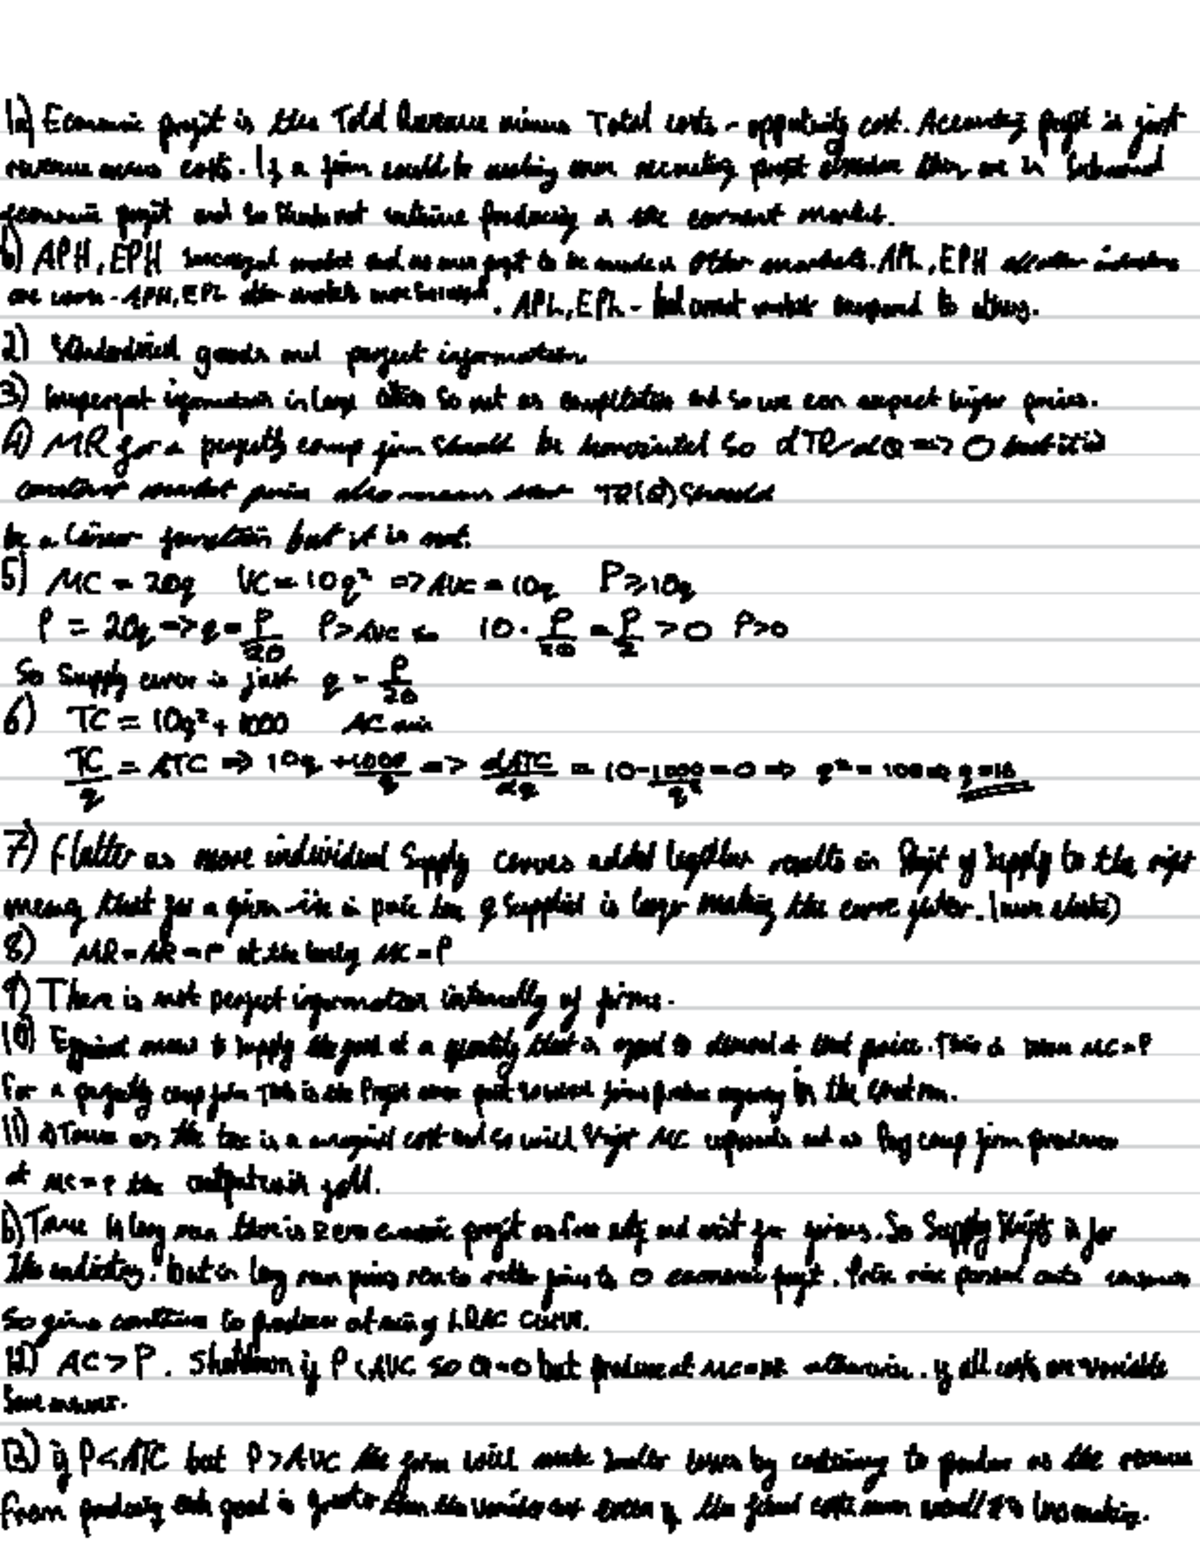 1a) Economic profit is the Total Revenue minus Total costs - opportunity cost. Accounting profit is just
revenue minus costs. If a firm could be making more accounting profit elsewhere then are in
economic profit and so should not continue producing in the current market.
b) APH, EPH market and no more profit to be made in other markets. APL, EPH all other industries
are worse - APH, EPL other markets more . APL, EPL - but compared to others.
2) Standardised goods and perfect information
3) Imperfect information in large cities so not as competitive and so we can expect higher prices.
4) MR for a perfectly comp firm should be horizontal so dTR/dQ => 0 but it is
constant market price also means TR(Q) should
be a linear function but it is not.
5) MC = 20q VC = 10q² => AVC = 10q P ≥ 10q
P = 20q => q = P/20 P > AVC so 10 · P/20 = P/2 > 0 P>0
So Supply curve is just q = P/20
6) TC = 10q² + 1000 AC min
TC/q = ATC => 10q + 1000/q => dATC/dq = 10 - 1000/q² = 0 => q² = 100 => q = 10
7) Flatter as more individual supply curves added together results in shift of supply to the right
meaning that for a given in price the q supplied is larger making the curve flatter. (more elastic)
8) MR = AR = P MC = P
9) There is not perfect information internally of firms.
10) Efficient means to supply the good at a quantity that is equal to demand at that price. This is when MC = P
For a perfectly comp firm This is the profit max point so firms produce in the .
11) a) True as the tax is a marginal cost and so will shift MC upwards and as perf comp firm produces
at MC = P the output will fall.
b) True In long run there is zero economic profit as free entry and exit for firms. So Supply shifts in for
the industry. But in long run price rises to return firms to 0 economic profit. Price rise passed onto consumers
So firms continue to produce at min of LRAC curve.
12) AC > P. Shutdown if P < AVC so Q = 0 but produce at MC = MR otherwise. If all costs are variable
Same answer.
13) if P < ATC but P > AVC the firm will make smaller losses by continuing to produce as the revenue
from producing each good is greater than the variable cost even if the fixed costs mean overall it is loss making.